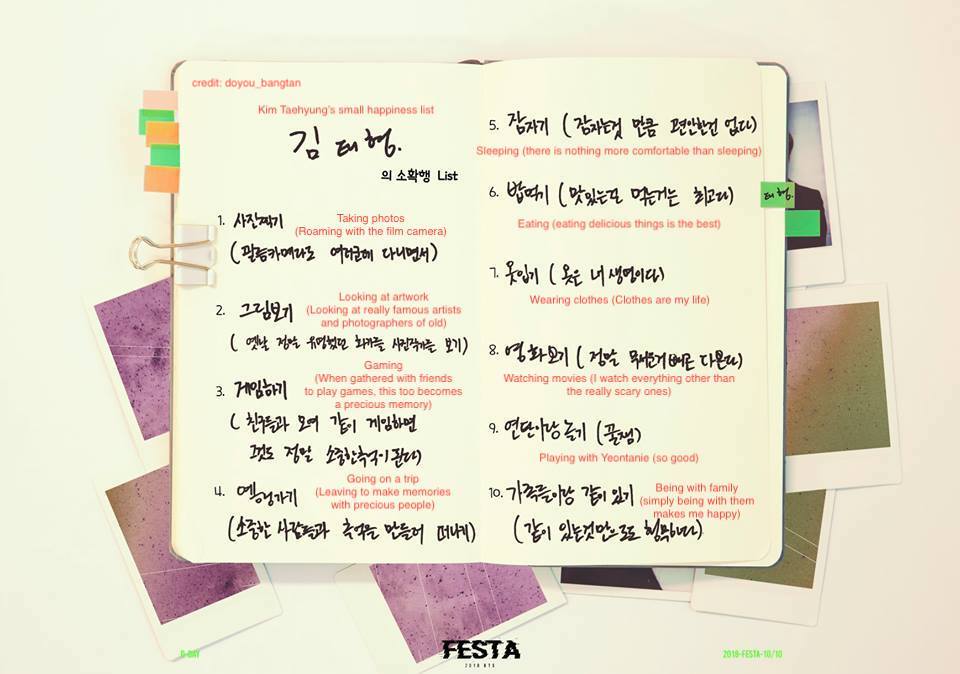 credit: doyou_bangtan
Kim Taehyung's small happiness list
김태형.
의 소확행 List
1. 사진찍기
Taking photos
(Roaming with the film camera)
(필름카메라로 여러군데 다니면서)
2. 그림보기
Looking at artwork
(Looking at really famous artists
and photographers of old)
(옛날 정말 유명했던 화가들 사진작가들 보기)
3. 게임하기
Gaming
(When gathered with friends
to play games, this too becomes
a precious memory)
(친구들과 모여 같이 게임하면
그것도 정말 소중한추억이 된다)
4. 여행가기
Going on a trip
(Leaving to make memories
with precious people)
(소중한 사람들과 추억을 만들러 떠나기)
5. 잠자기 (잠자는것 만큼 편안한건 없다)
Sleeping (there is nothing more comfortable than sleeping)
6. 밥먹기 (맛있는건 먹는거는 최고다)
Eating (eating delicious things is the best)
7. 옷입기 (옷은 내 생명이다)
Wearing clothes (Clothes are my life)
8. 영화보기 (정말 무서운거 빼고 다본다)
Watching movies (I watch everything other than
the really scary ones)
9. 연탄이랑 놀기 (꿀잼)
Playing with Yeontanie (so good)
10. 가족들이랑 같이 있기
Being with family
(simply being with them
makes me happy)
(같이 있는것만으로도 행복하다)
태형.
D-DAY
FESTA
2018 BTS
2018-FESTA-10/10